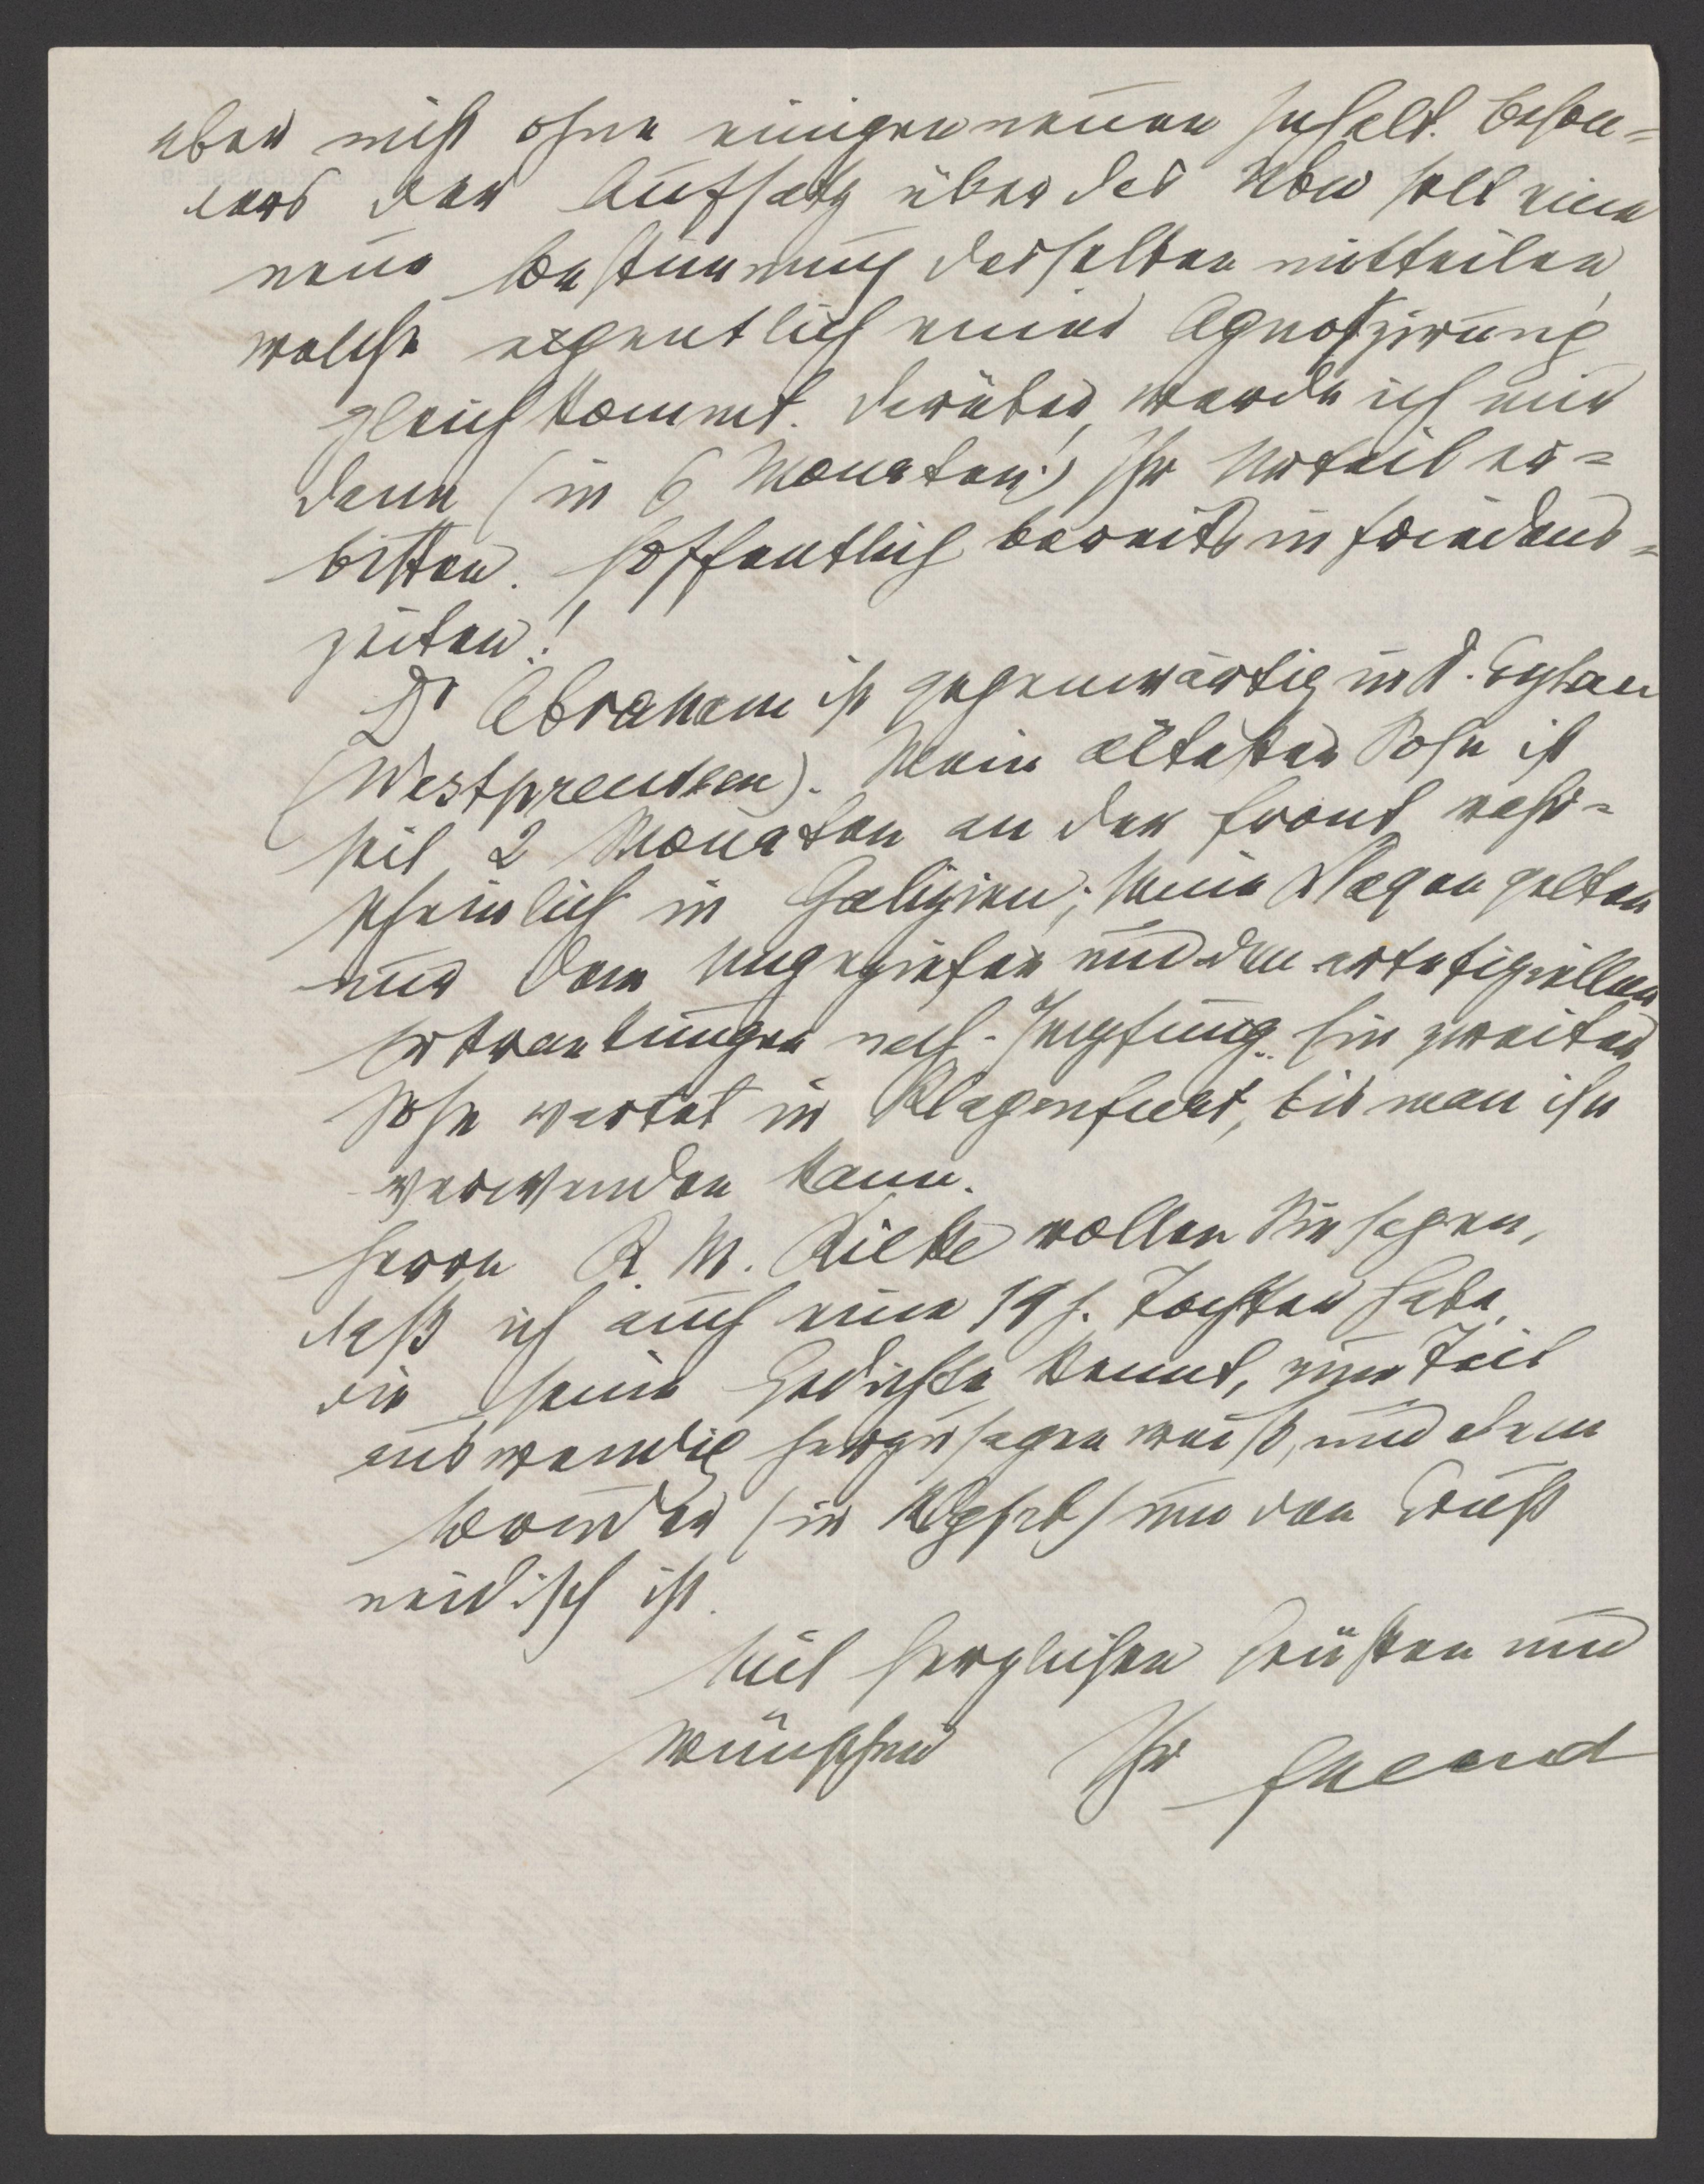 aber nicht ohne einigen neuen Inhalt. Beson=
ders der Aufsatz über das Ubw soll eine
neue Bestimmung desselben mitteilen,
welche eigentlich einer Agnoszirung
gleichkommt. Darüber werde ich mir
dann (in 6 Monaten!) Ihr Urteil er=
bitten. Hoffentlich bereits in Friedens=
zeiten!
Dr Abraham ist gegenwärtig in D. Eylau
(Westpreussen). Mein ältester Sohn ist
seit 2 Monaten an der Front wahr=
scheinlich in Galizien; seine Klagen gelten
nur dem Ungeziefer und den artefiziellen
Erkrankungen nach Impfung. Ein zweiter
Sohn wartet in Klagenfurt, bis man ihn
verwenden kann.
Herrn R. M. Rilke wollen Sie sagen,
daß ich auch eine 19 j. Tochter habe,
die seine Gedichte kennt, zum Teil
auswendig herzusagen weiß, und dem
Bruder (in Klgft) um den Gruß
neidisch ist.
Mit herzlichen Grüßen und
Wünschen Ihr Freud